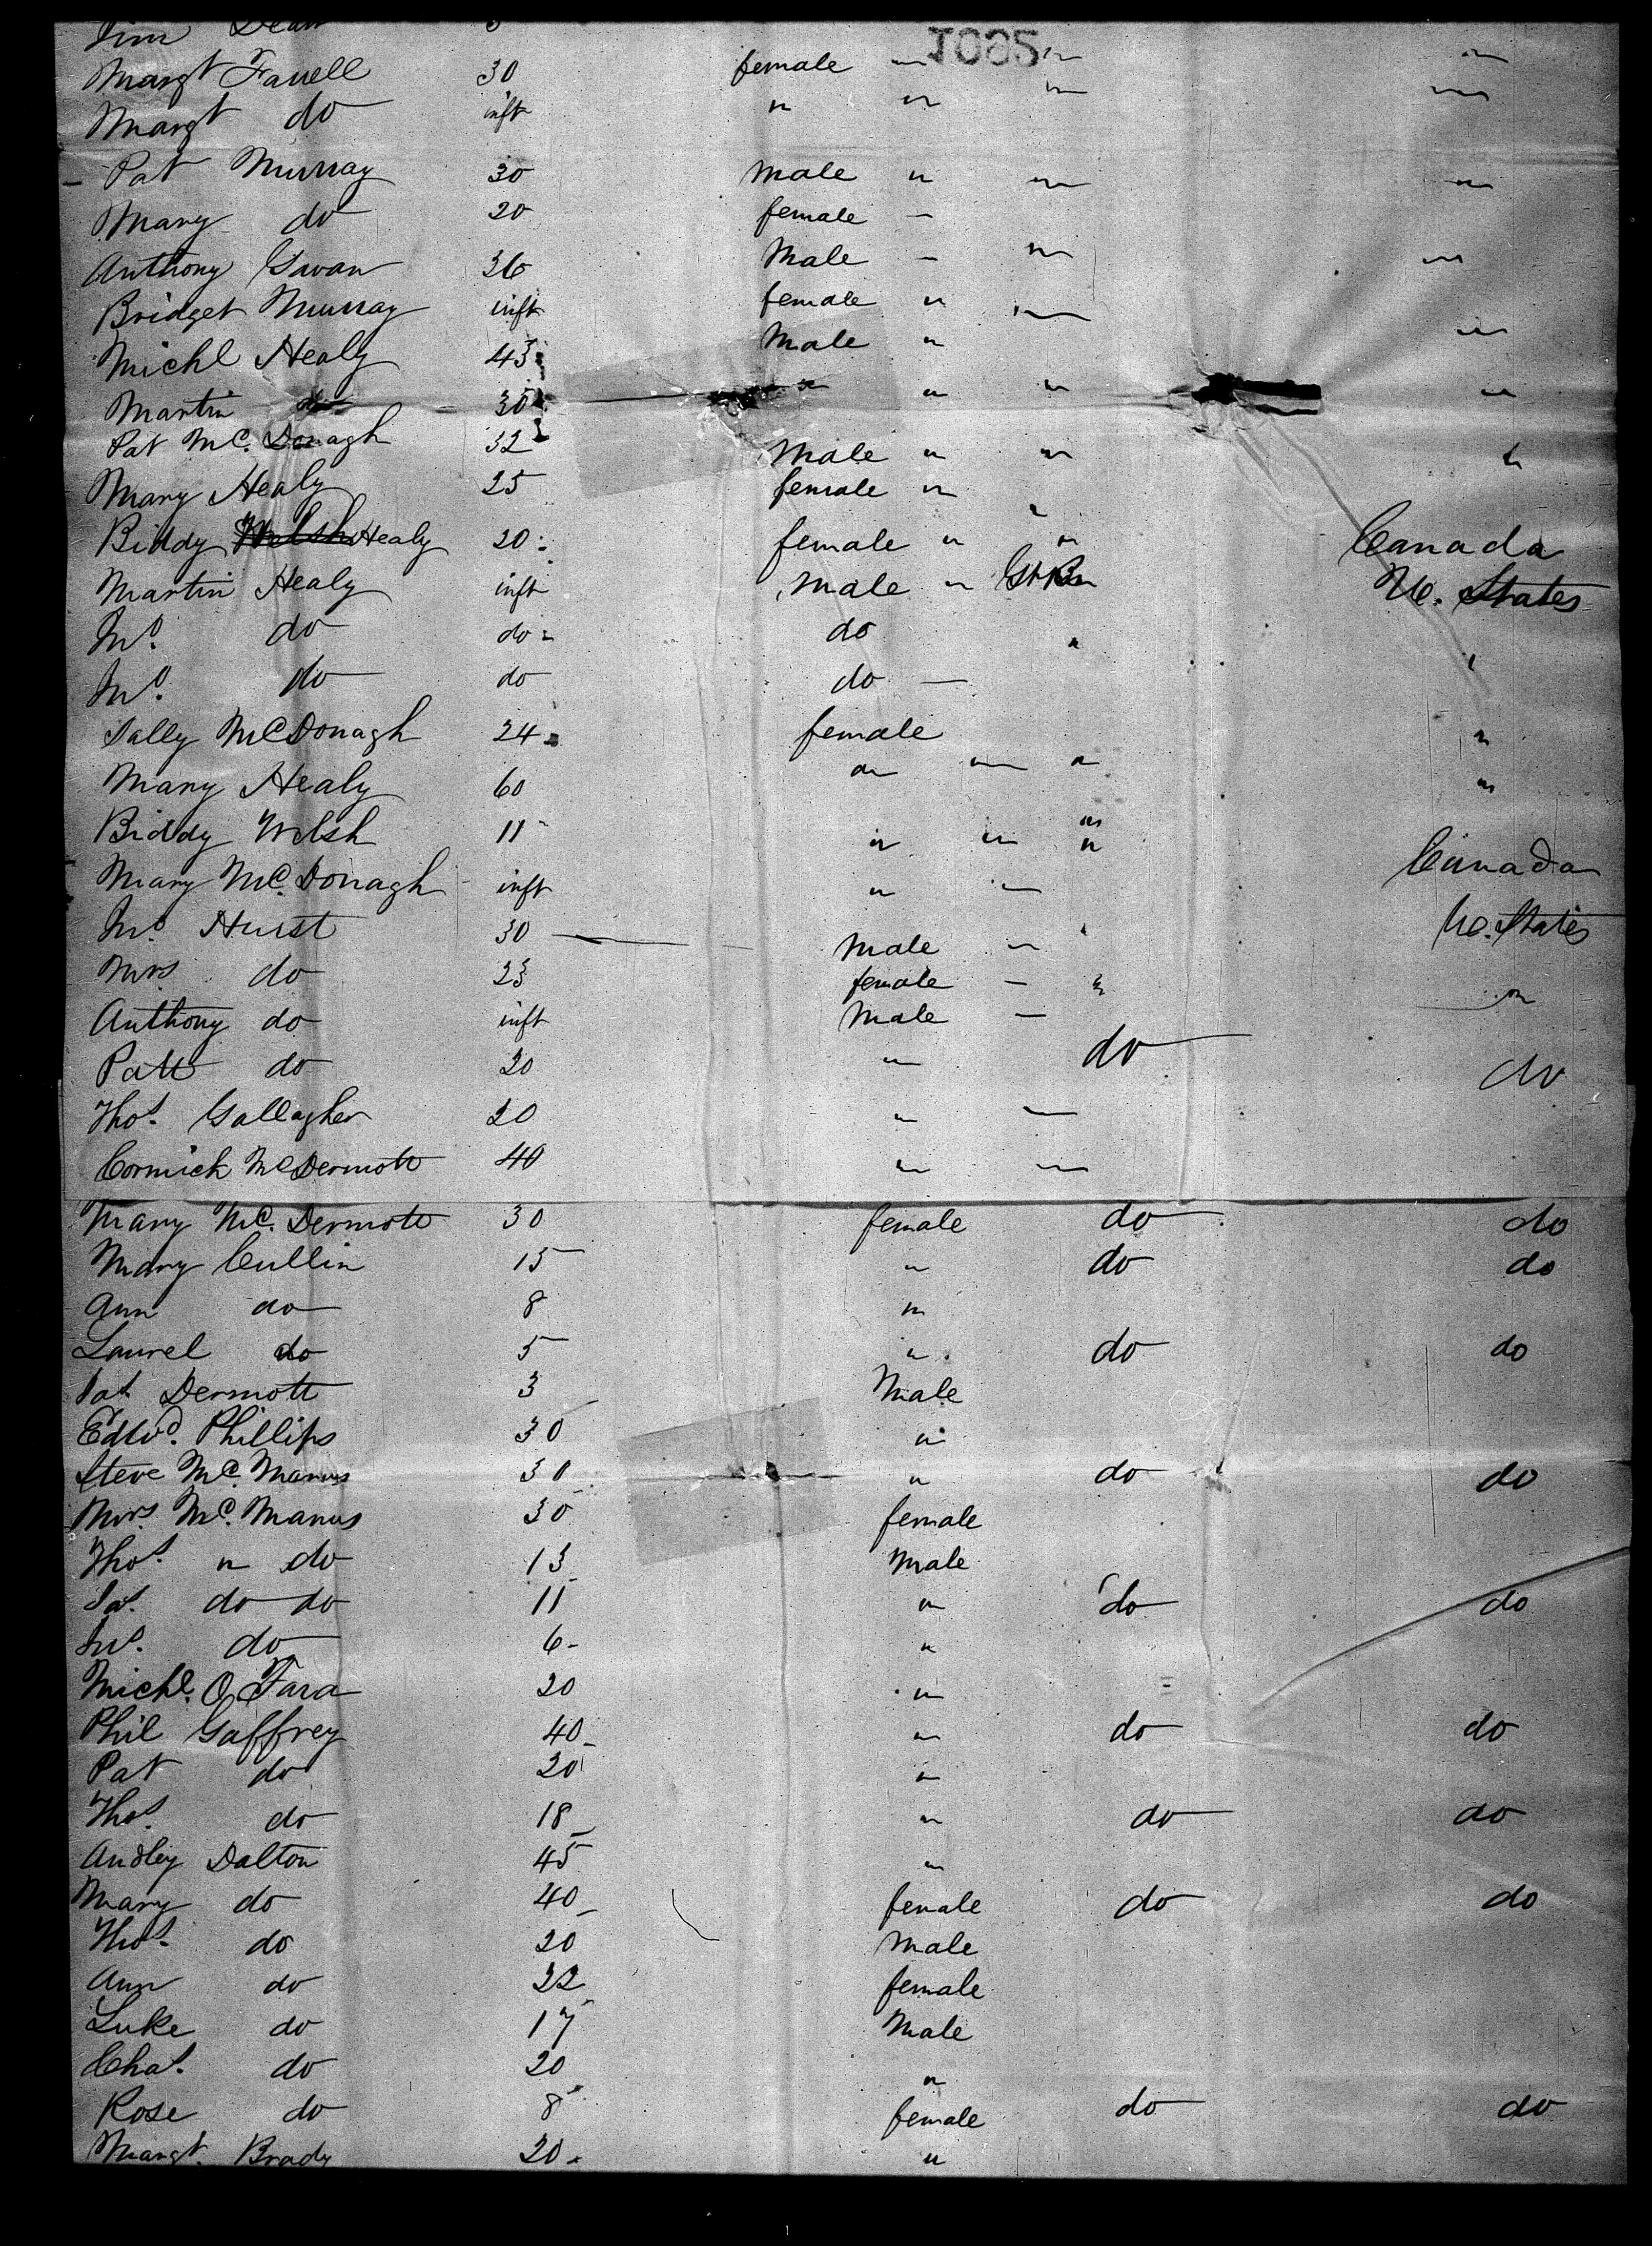 Margt Farrell 30 female " "
Margt do inft " " " "
Pat Murray 30 male " " "
Mary do 20 female "
Anthony Gavan 36 Male " " "
Bridget Murray inft female " "
Michl Healy 43 Male " "
Martin do 30 " " " "
Pat McDonagh 32 Male " " "
Mary Healy 25 female "
Biddy Welsh Healy 20 female " " Canada
Martin Healy inft Male " Gt Bn U. States
Jno. do do do "
Jno. do do do "
Sally McDonagh 24 female "
Mary Healy 60 " " " "
Biddy Welsh 11 " " " Canada
Mary McDonagh inft " "
Jno. Hurst 30 Male " U. States
Mrs. do 23 female " "
Anthony do inft Male " "
Patt do 20 " do do
Thos. Gallagher 20 " "
Cormick McDermott 40 " "
Mary McDermott 30 female do do
Mary Cullin 15 " do do
Ann do 8 "
Laurel do 5 " do do
Pat Dermott 3 Male
Edwd. Phillips 30 "
Steve McManus 30 " do do
Mrs. McManus 30 female
Thos. " do 13 Male
Jas. do do 11 " do do
Jno. do 6 "
Michl. O Fara 20 "
Phil Gaffrey 40 " do do
Pat do 20 "
Thos. do 18 " do do
Audley Dalton 45 "
Mary do 40 female do do
Thos. do 20 Male
Ann do 22 female
Luke do 17 Male
Chas. do 20 "
Rose do 8 female do do
Margt. Brady 20 "